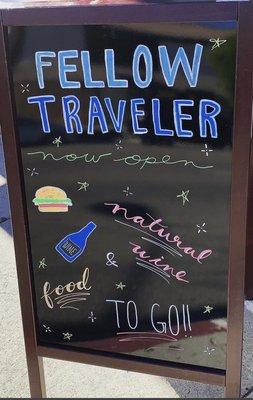 FELLOW
TRAVELER
now open
natural
wine
WINE
&
food
TO GO!!